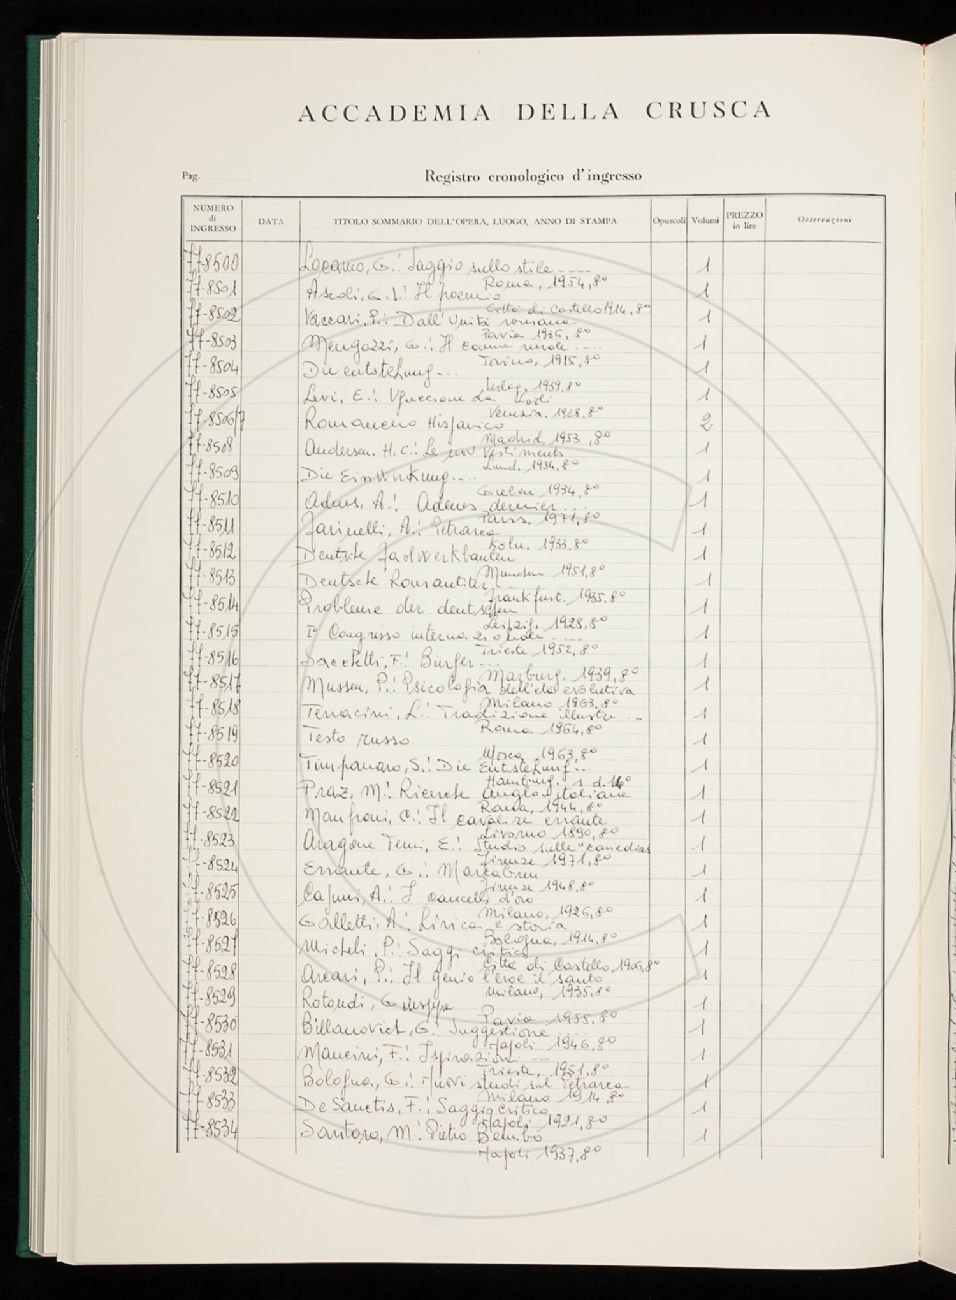 ACCADEMIA DELLA CRUSCA
Pag.
Registro cronologico d'ingresso
NUMERO di INGRESSO DATA TITOLO SOMMARIO DELL'OPERA, LUOGO, ANNO DI STAMPA Opuscoli Volumi PREZZO in lire Osservazioni
77-8500 G.: Saggio sullo stile .... 1
Roma, 1954, 8°
77-8501 Ascoli, G. I.: Il 1
Città di Castello 1914, 8°
77-8502 Vaccari, P.: Dall'Unità romana 1
Pavia 1936, 8°
77-8503 Mengozzi, G.: Il comune rurale .... 1
Torino, 1915, 8°
77-8504 Die entstehung... 1
1939, 8°
77-8505 Levi, E.: Uguccione da Lodi 1
Venezia, 1928, 8°
77-8506/7 Romancero Hispanico 2
Madrid, 1953, 8°
77-8508 Andersen, H. C.: Le vestiments 1
Lund, 1934, 8°
77-8509 Die Einwirkung.... 1
1934, 8°
77-8510 A.: dernier ... 1
Paris, 1971, 8°
77-8511 Farinelli, A.: Petrarca 1
Köln, 1933, 8°
77-8512 Deutsche Fachwerkbauten 1
München 1951, 8°
77-8513 Deutsche Romantiker 1
Frankfurt, 1935, 8°
77-8514 Probleme der deutschen 1
Leipzig, 1928, 8°
77-8515 I° Congresso internazionale .... 1
Trieste 1952, 8°
77-8516 Sacchetti, F.: Bürger... 1
Marburg, 1939, 8°
77-8517 Mussen, P.: Psicologia dell'età evolutiva 1
Milano 1963, 8°
77-8518 Terracini, L.: Tradizione illustre ... 1
Roma 1964, 8°
77-8519 Testo russo 1
Mosca, 1963, 8°
77-8520 Timpanaro, S.: Die Entstehung... 1
Hamburg, s. d. 16°
77-8521 Praz, M.: Ricerche anglo-italiane 1
Roma, 1944, 8°
77-8522 Manfroni, C.: Il cavaliere errante 1
Livorno 1890, 8°
77-8523 Aragone Terni, E.: Studio sulle "comedias 1
Firenze 1971, 8°
77-8524 Errante, G.: Marcabru 1
Firenze 1948, 8°
77-8525 A.: I cancelli d'oro 1
Milano, 1926, 8°
77-8526 Galletti, A.: Lirica e storia 1
Bologna, 1914, 8°
77-8527 Micheli, P.: Saggi critici 1
Città di Castello, 1906, 8°
77-8528 Arcari, P.: Il genio l'eroe il santo 1
Milano, 1935, 8°
77-8529 Rotondi, Giuseppe 1
Pavia 1955, 8°
77-8530 Billanovich, G.: Suggestione ... 1
Napoli 1946, 8°
77-8531 Mancini, F.: Ispirazioni ... 1
Trieste, 1951, 8°
77-8532 Bologna, G.: Nuovi studi sul Petrarca 1
Milano 1914, 8°
77-8533 De Sanctis, F.: Saggio critico 1
Napoli 1921, 8°
77-8534 Santoro, M. Pietro Bembo 1
Napoli 1937, 8°